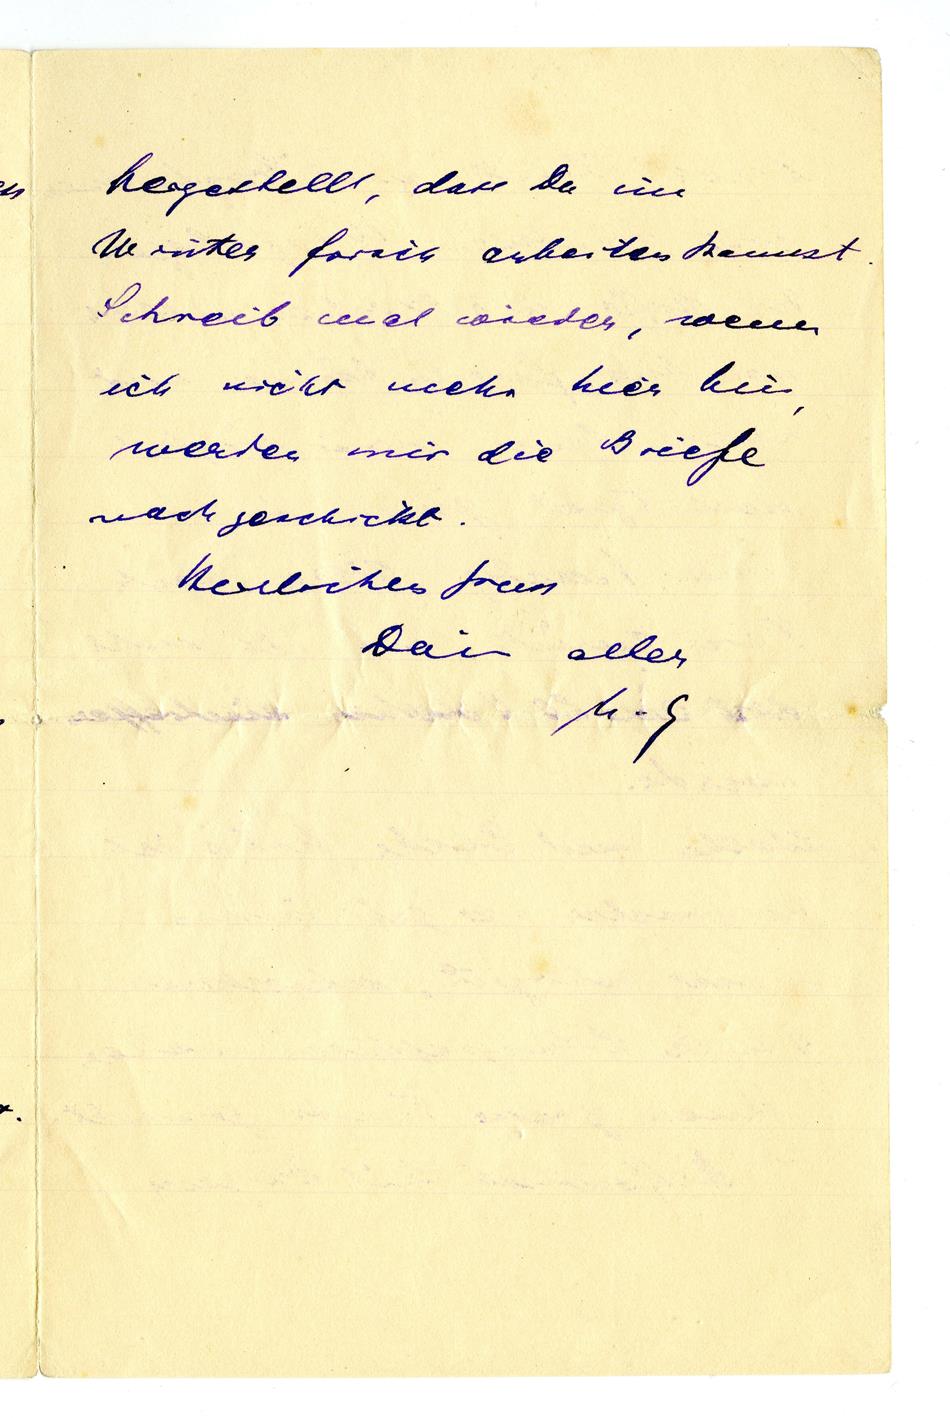 hergestellt, dass Du im
Winter frisch arbeiten kannst.
Schreib mal wieder, wenn
ich nicht mehr hier bin,
werden mir die Briefe
nachgeschickt.
Herzlichen Gruss
Dein alter
H. G